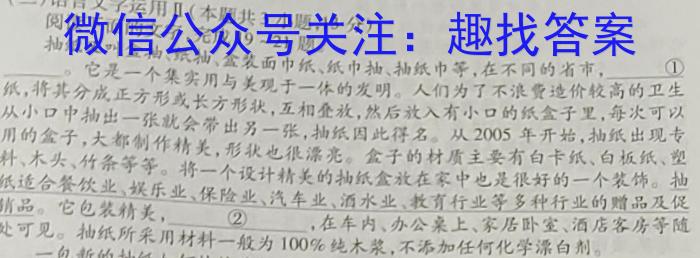 (二)语言文字运用Ⅱ(本题共3小题,
微信公众号关注：趣找答案
阅
抽纸 盒抽、纸抽、盒装面巾纸、纸巾抽、抽纸巾等,在不同的省市,①
。它是一个集实用与美观于一体的发明。人们为了不浪费造价较高的卫生
纸,将其分成正方形或长方形状,互相叠放,然后放入有小口的纸盒子里,每次可以
从小口中抽出一张就会带出另一张,抽纸因此得名。从2005年开始,抽纸出现专
用的盒子,大都制作精美,形状也很漂亮。盒子的材质主要有白卡纸、白板纸、塑
料、木头、竹条等等。将一个设计精美的抽纸盒放在家中也是很好的一个装饰。抽
纸适合餐饮业、娱乐业、保险业、汽车业、酒水业、教育行业等多种行业的赠品及促
销品。它包装精美,②,在车内、办公桌上、家居卧室、酒店客房等随
处可见。抽纸所采用材料一般为100%纯木浆,不添加任何化学漂白剂。
一包新的抽纸